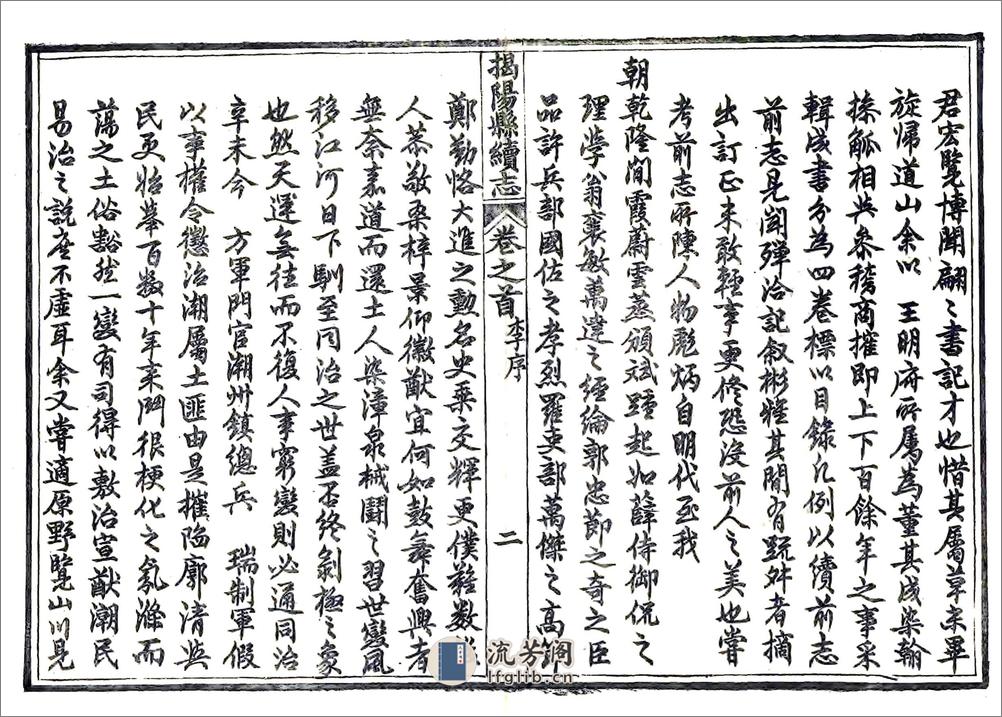 君宏覽博聞翩〻書記才也惜其屬草未畢
旋歸道山余以 王明府所屬為董其成染翰
操觚相與參稽商搉即上下百餘年之事采
輯成書分為四卷標以目錄凡例以續前志
前志見聞殫洽記叙彬雅其間有踈舛者摘
出訂正未敢輕事更修恐沒前人之美也嘗
考前志所陳人物彪炳自明代至我
朝乾隆間霞蔚雲蒸頒斌踵起如薛侍御侃之
理學翁襄敏萬達之經綸郭忠節之奇之臣
品許兵部國佐之孝烈羅吏部萬傑之高
揭陽縣續志 卷之首 李序 二
鄭勤恪大進之勳名史乘交輝更僕難數
人恭敬桑梓景仰徽猷宜何如鼓舞奮興者
無奈嘉道而還土人染漳泉械鬭之習世變風
移江河日下馴至同治之世蓋否終剝極之象
也然天運無往而不復人事窮變則必通同治
辛未今 方軍門官潮州鎮總兵 瑞制軍假
以事權令懲治潮屬土匪由是摧陷廓清與
民更始舉百數十年來鬥很梗化之氣滌而
蕩之土俗豁然一變有司得以敷治宣猷潮民
易治之說庶不虛耳余又嘗適原野覽山川見
流芳阁
lfglib.cn